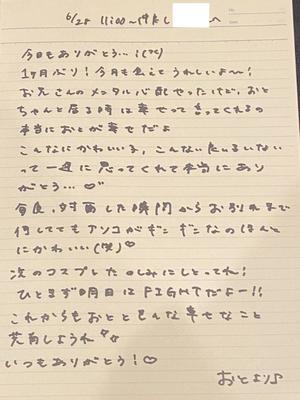 6/28 11:00~
今日もありがとう…!(^^)
1ヶ月ぶり!今月も会えてうれしいよ~!
お兄さんのメンタル心配やったけど、おと
ちゃんと居る時は幸せって言ってくれるの
本当におとが幸せだよ
こんなにかわいい子、こんない
って一途に思ってくれて本当にあり
がとう…♡
毎度、対面した瞬間からお別れまで
何しててもアソコがギンギンなのほんと
にかわいい(笑)♡
次のコスプレたのしみにしとってね!
ひとまず明日は FIGHTだよー!!
これからもおととそんな幸せなこと
共有しようね
いつもありがとう!♡
おとより♪